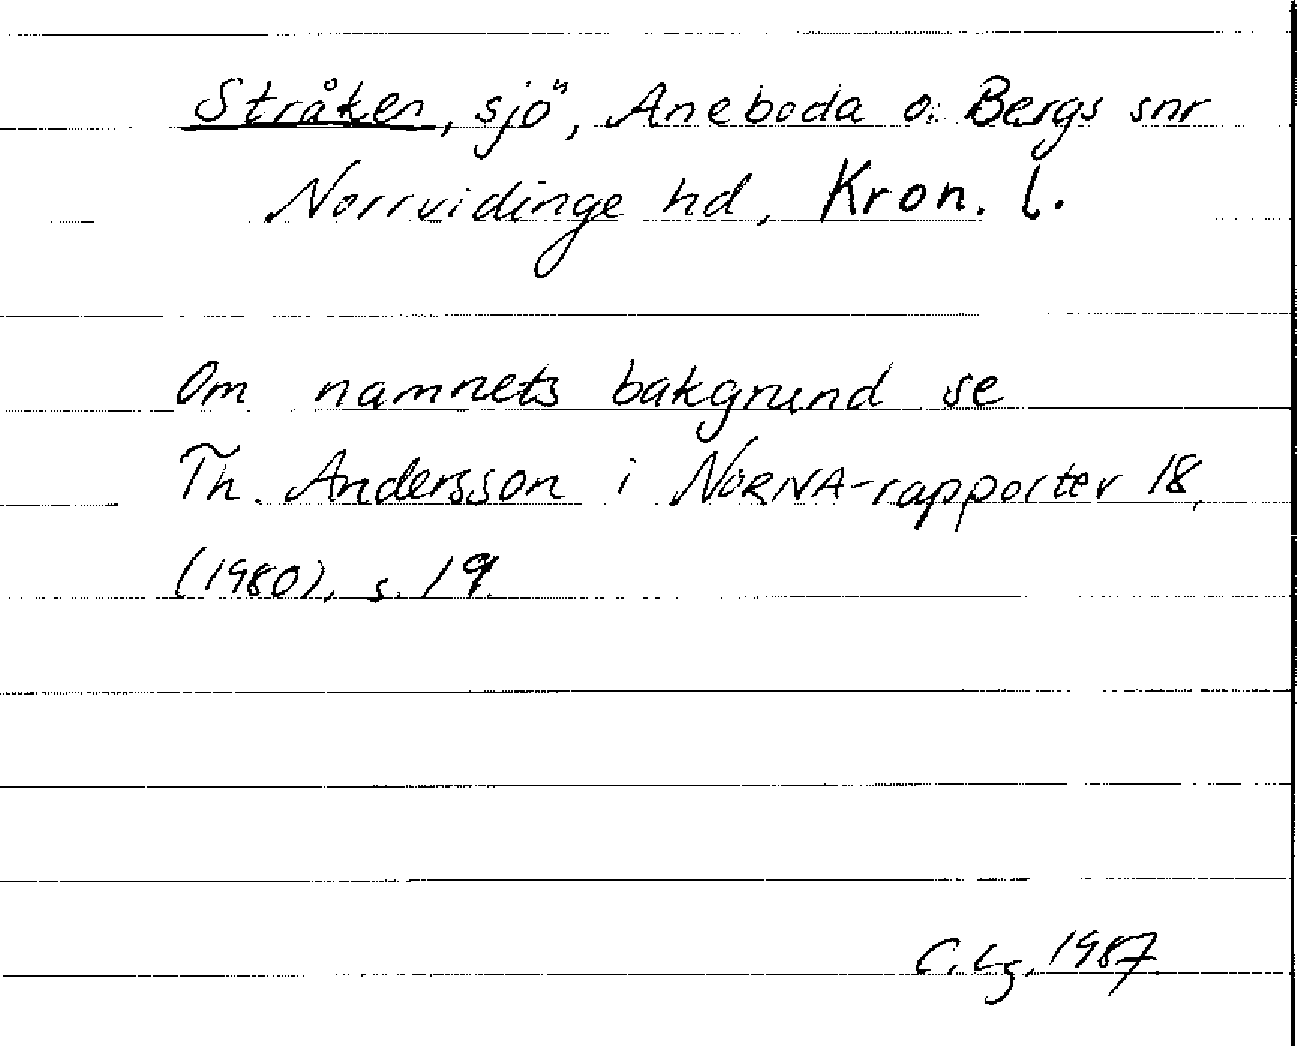 Stråken, sjö, Aneboda o. Bergs snr
Norrvidinge hd, Kron. l.
Om namnets bakgrund se
Th. Andersson i NORNA-rapporter 18,
(1980), s. 19.
C. Lg. 1987